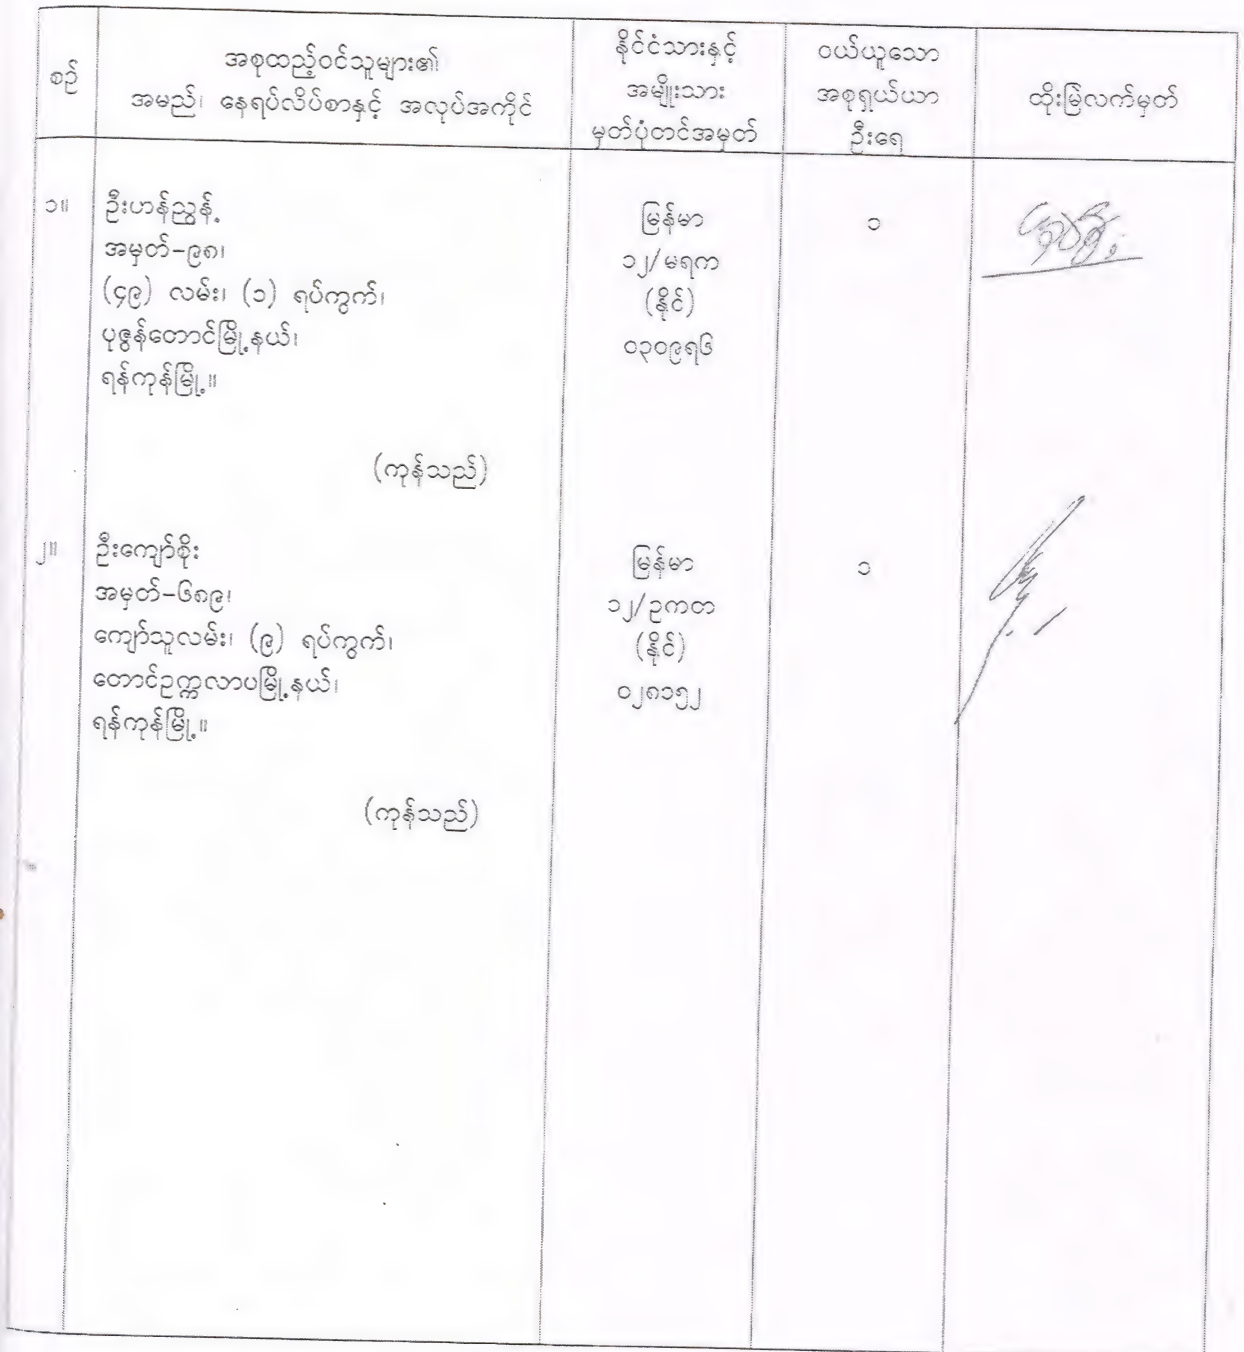 စဉ်
အစုထည့်ဝင်သူများ၏
အမည်၊ နေရပ်လိပ်စာနှင့် အလုပ်အကိုင်
နိုင်ငံသားနှင့်
အမျိုးသား
မှတ်ပုံတင်အမှတ်
ဝယ်ယူသော
အစုရှယ်ယာ
ဦးရေ
ထိုးမြဲလက်မှတ်
၁။
ဦးဟန်ညွန့်
အမှတ်-၉၈၊
(၄၉) လမ်း၊ (၁) ရပ်ကွက်၊
ပုဇွန်တောင်မြို့နယ်၊
ရန်ကုန်မြို့။
(ကုန်သည်)
မြန်မာ
၁၂/မရက
(နိုင်)
၀၃၀၉၅၆
၁
၂။
ဦးကျော်စိုး
အမှတ်-၆၈၉၊
ကျော်သူလမ်း၊ (၉) ရပ်ကွက်၊
တောင်ဥက္ကလာပမြို့နယ်၊
ရန်ကုန်မြို့။
(ကုန်သည်)
မြန်မာ
၁၂/ဥကတ
(နိုင်)
၀၂၈၁၅၂
၁